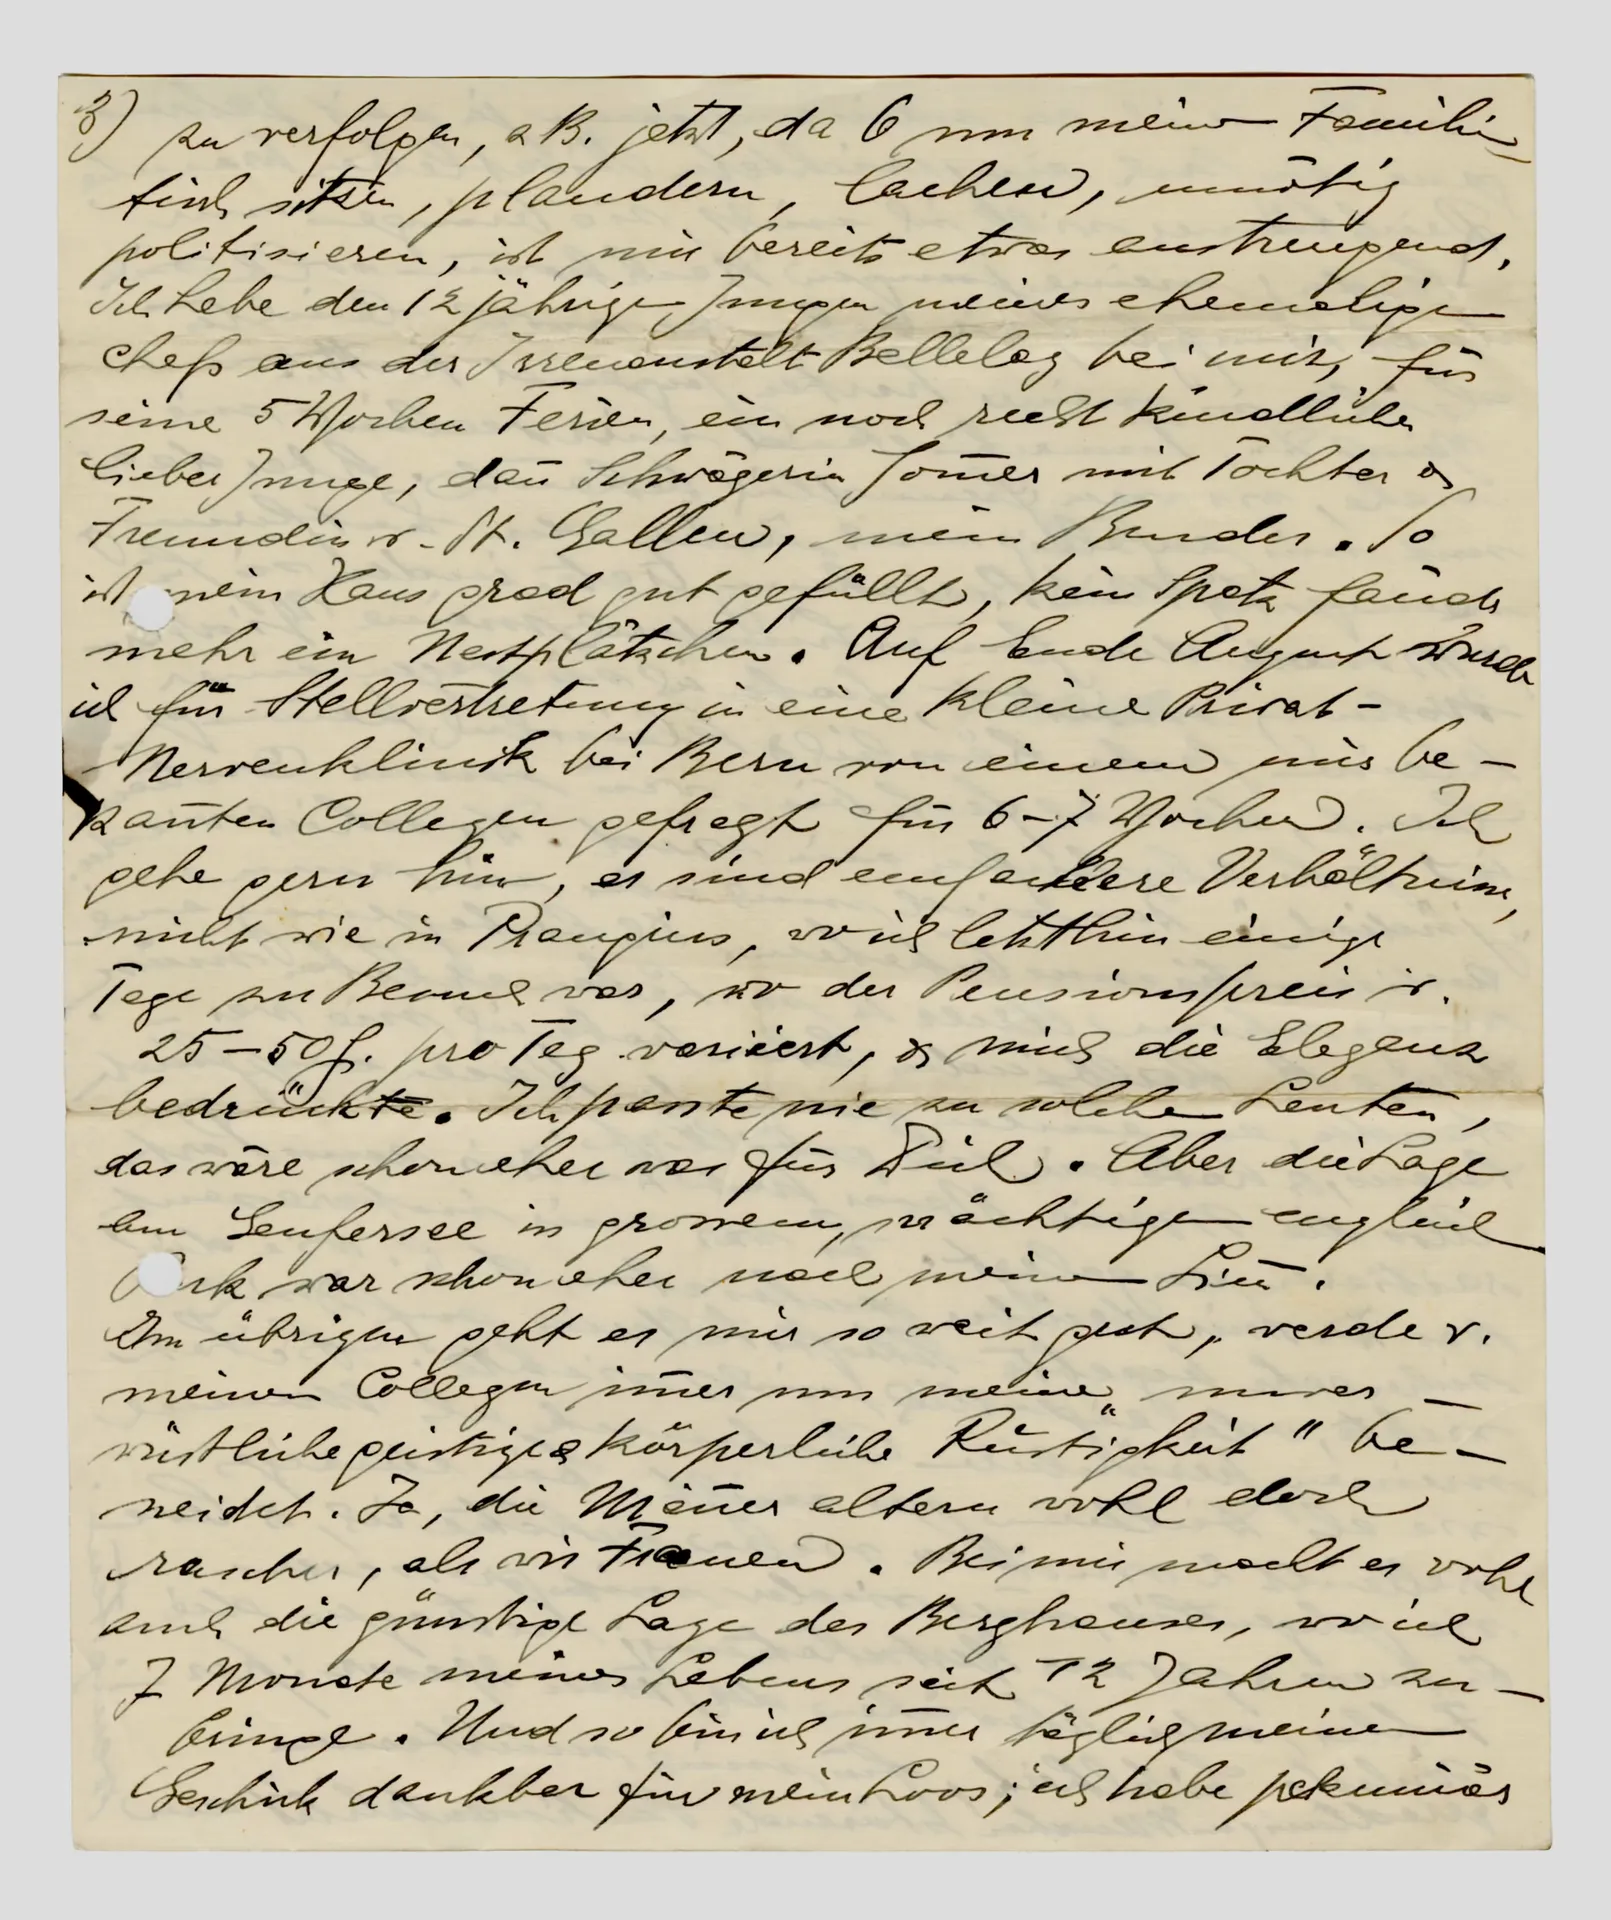 3) zu verfolgen, z B. jetzt, da 6 um meinen Familien-
tisch sitzen, plaudern, lachen, unnötig
politisieren, ist mir bereits etwas anstrengend.
Ich habe den 12 jährigen Jungen meines ehemaligen
Chefs aus der Irrenanstalt Bellelay bei mir, für
seine 5 Wochen Ferien, ein noch recht kindlicher
lieber Junge, dan̄ Schwägerin Som̄er mit Tochter &
Freundin v. St. Gallen, mein Bruder. So
ist mein Haus grad gut gefüllt, kein Spatz fände
mehr ein Nestplätzchen. Auf Ende August wurde
ich für Stellvertretung in eine kleine Privat-
Nervenklinik bei Bern von einem mir be-
kan̄ten Collegen gefragt für 6-7 Wochen. Ich
gehe gern hin, es sind einfachere Verhältnisse,
nicht wie in Prangins, wo ich letzthin einige
Tage zu Besuch war, wo der Pensionspreis v.
25-50 f. pro Tag variiert, & mich die Eleganz
bedrückte. Ich passte nie zu solchen Leuten,
das wäre schon eher was für Dich. Aber die Lage
am Genfersee in grossem, prächtigen englisch
Park war schon eher nach meinem Sin̄.
Im übrigen geht es mir so weit gut, werde v.
meinen Collegen im̄er um meine „unver-
wüstliche geistige & körperliche Rüstigkeit" be-
neidet. Ja, die Män̄er altern wohl doch
rascher, als wir Frauen. Bei mir macht es wohl
auch die günstige Lage des Berghauses, wo ich
7 Monate meines Lebens seit 12 Jahren zu-
bringe. Und so bin ich im̄er täglich meinem
Geschick dankbar für mein Loos; ich habe pekuniär